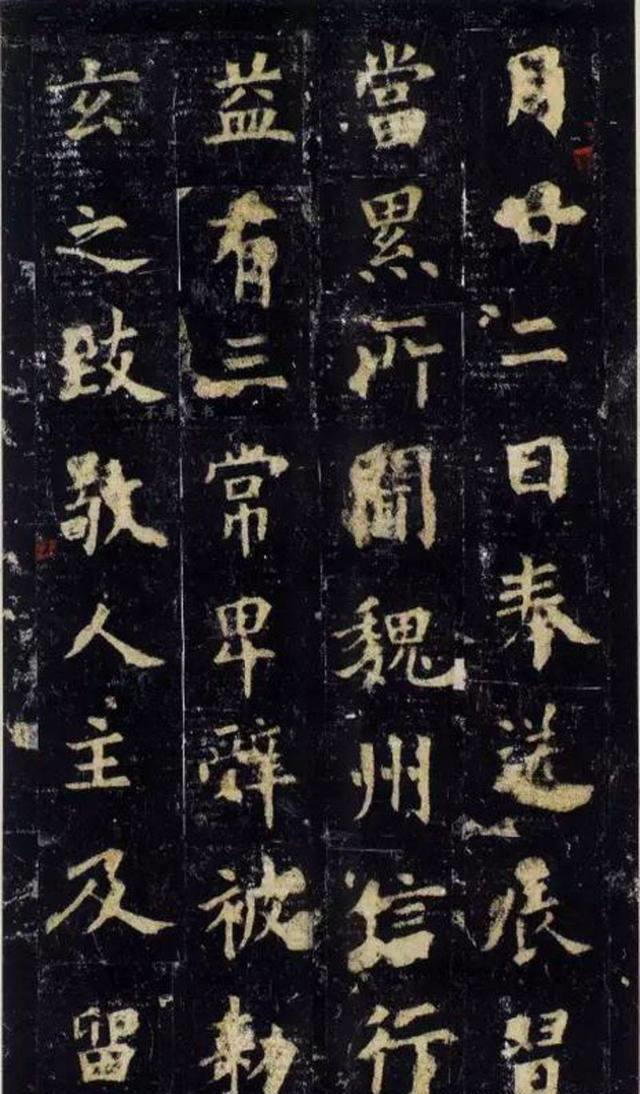 月廿二日奉送展習
當累所聞魏州信行
益有三常卑辭被勅
玄之致敬人主及留